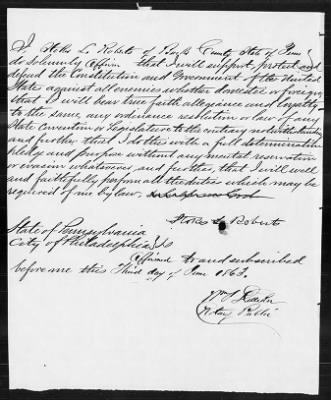 I, Stokes L. Roberts of Bucks County State of Penna
do Solemnly Affirm that I will support, protect and
defend the Constitution and Government of the United
States against all enemies whether domestic or foreign
that I will bear true faith allegiance and loyalty
to the same, any ordinance resolution or law of any
State Convention or Legislature to the contrary notwithstanding
and further that I do this with a full determination
pledge and purpose without any mental reservation
or evasion whatsoever and further, that I will well
and faithfully perform all the duties which may be
required of me by law. So help me God
Stokes L. Roberts
State of Pennsylvania
City of Philadelphia
Affirmed to and subscribed
before me this Third day of June 1863.
Wm
Notary Public